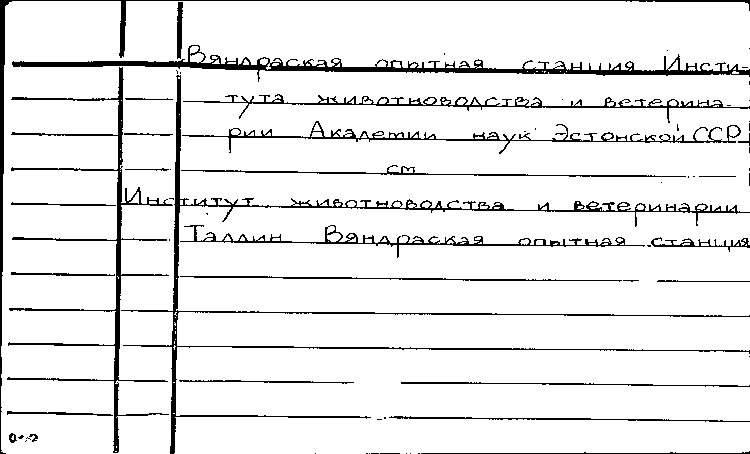 Вяндраская опытная станция Инсти-
тута животноводства и ветерина-
рии Академии наук Эстонской ССР
см
Институт животноводства и ветеринарии
Таллин Вяндраская опытная станция